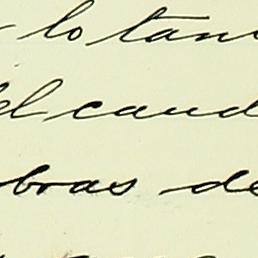 lo tan
el caud
bras de